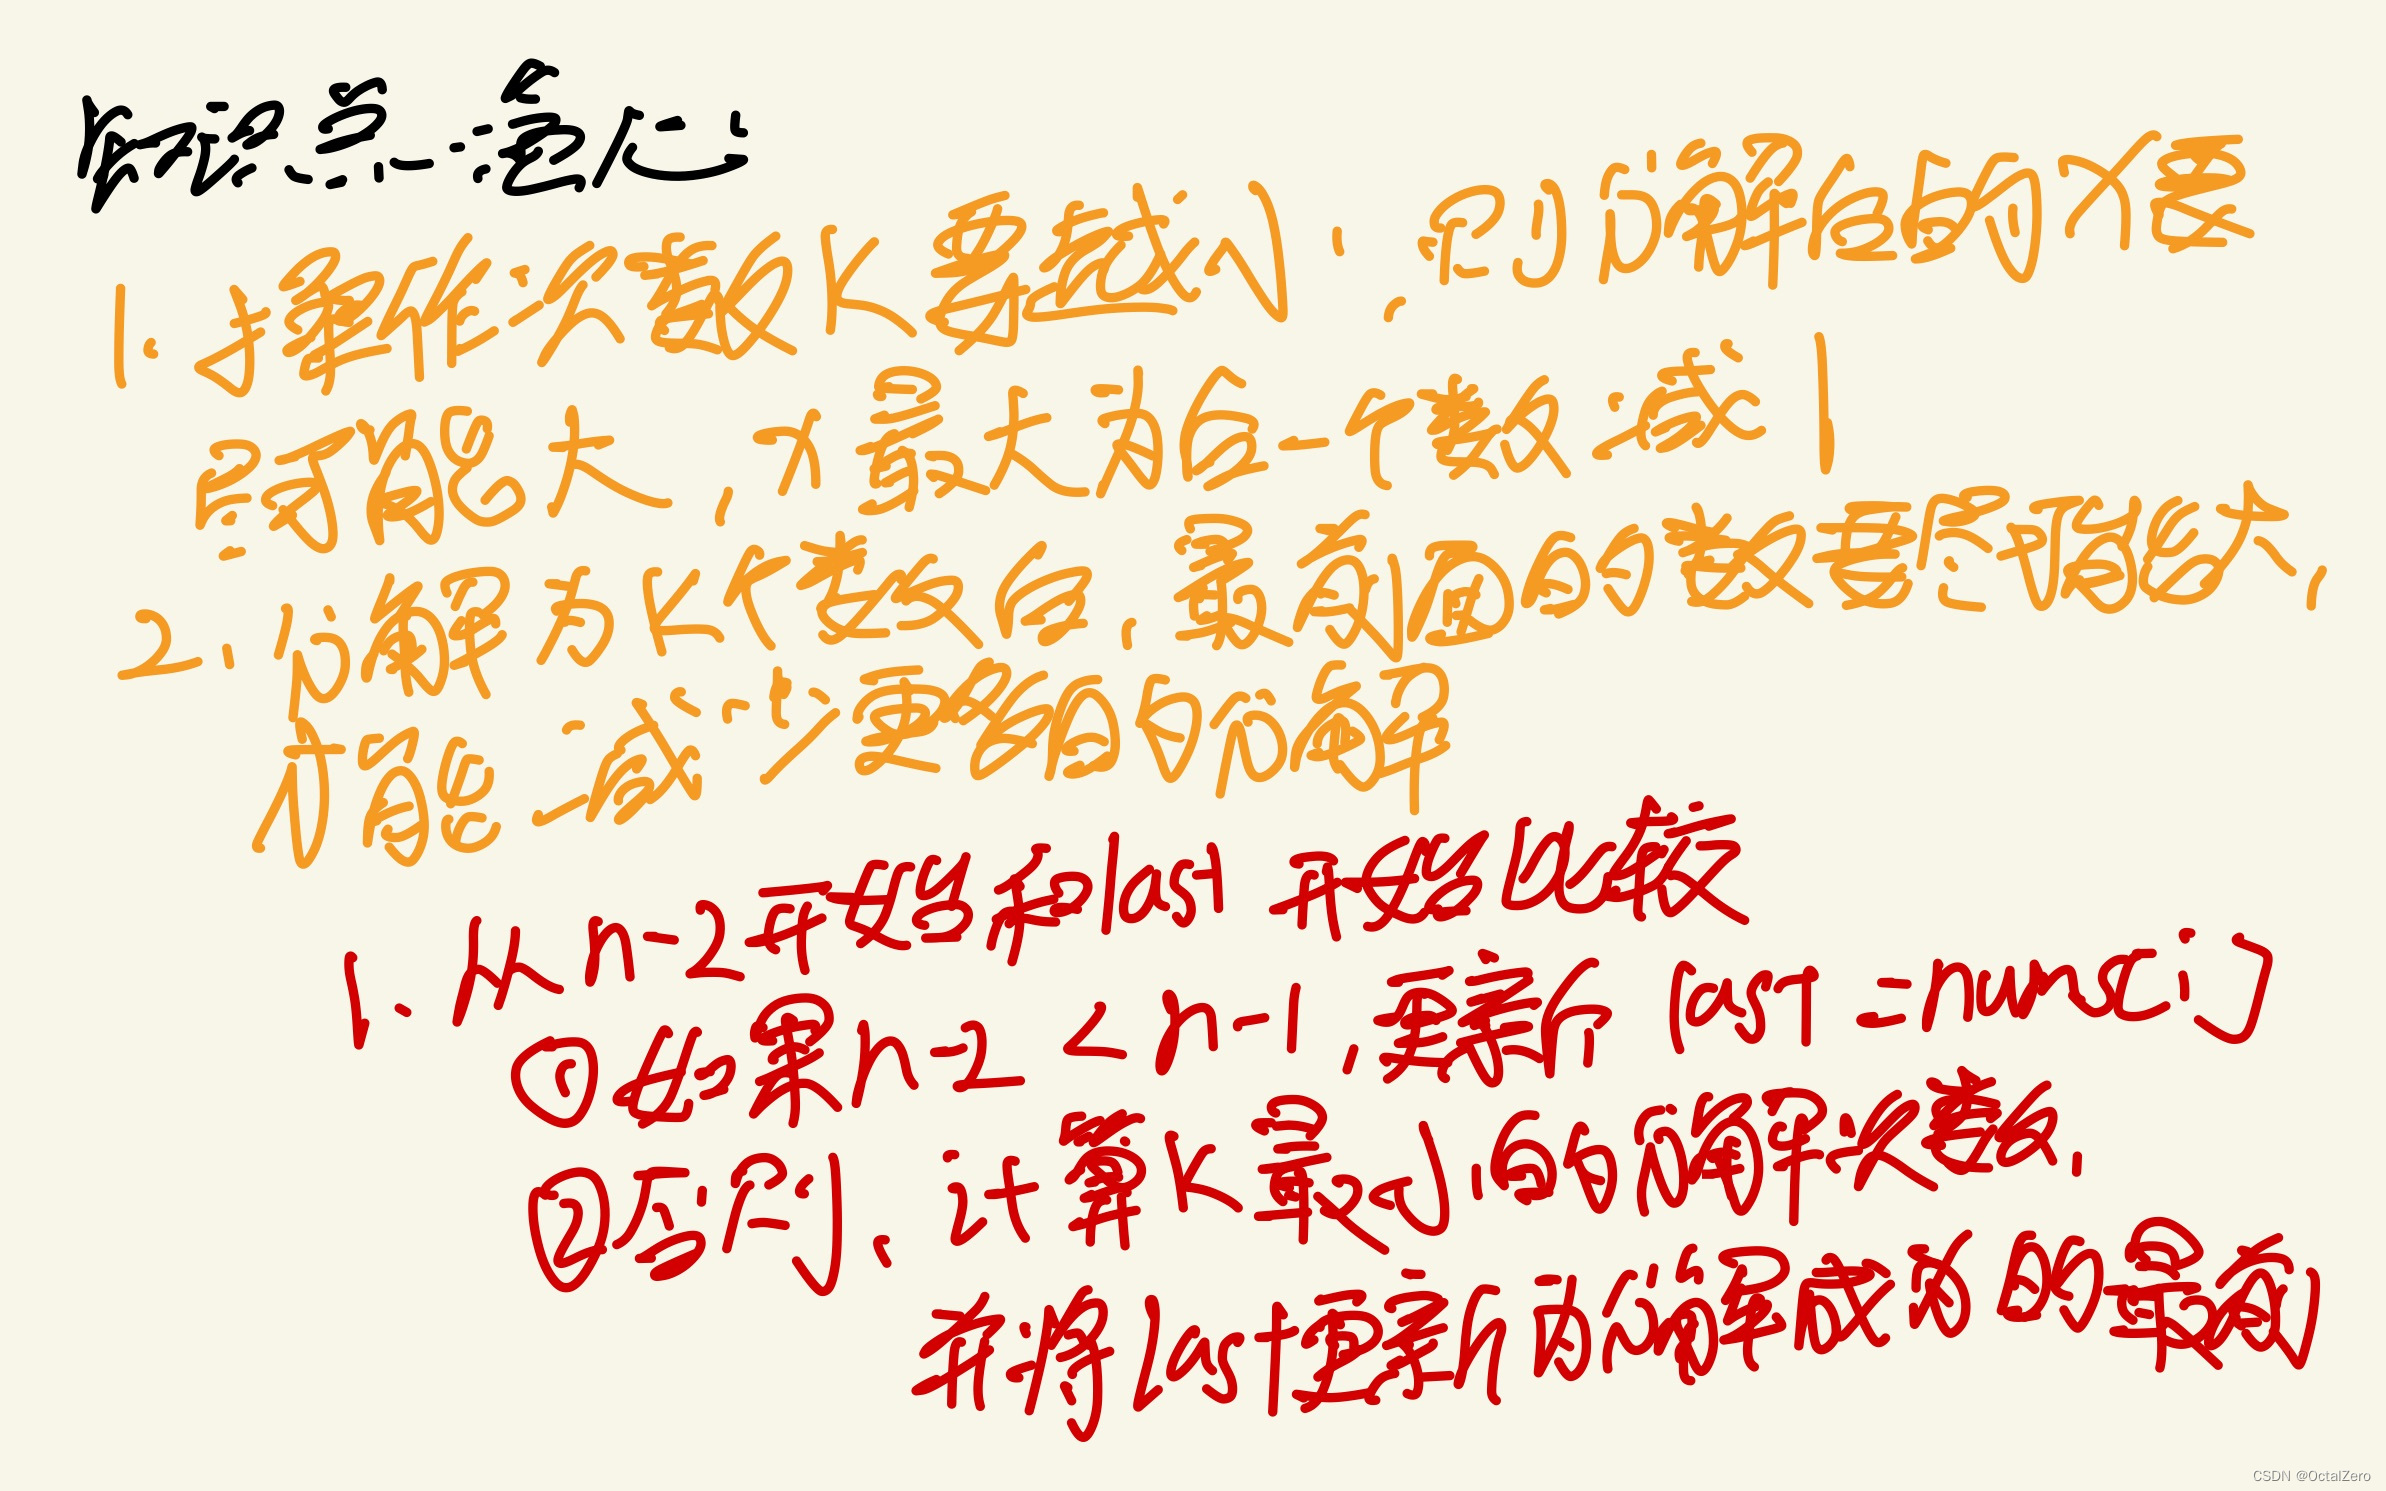 知识点：贪心
1. 操作次数K要越小，则分解的个数要
尽可能大，个最大为全一个数减1
2. 分解为K个数后，最前面的数要尽可能大，
才能减少更前面的分解
1. 从n-2开始和last开始比较
①如果n-2<n-1，更新last=nums[i]
②否则，计算K最小的分解次数，
并将last更新为分解成为的最前
CSDN @OctalZero